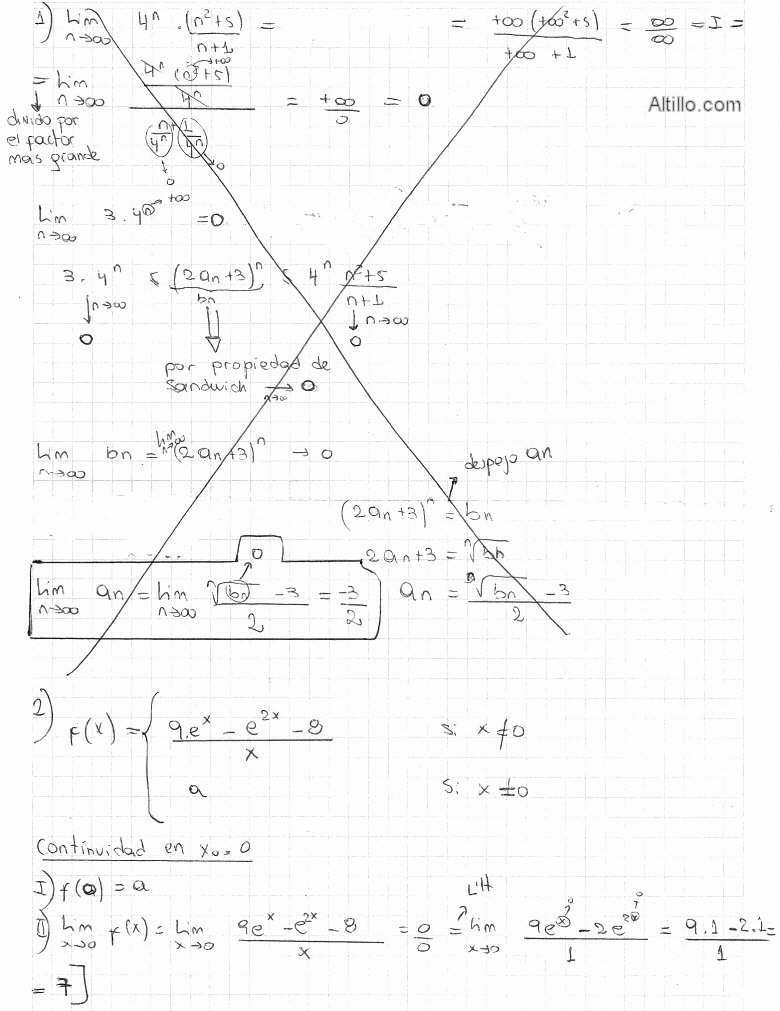 1) Lim n→∞ 4ⁿ · (n²+5)/(n+1) = = +∞(+∞²+5)/(+∞ +1) = ∞/∞ = I =
= Lim n→∞ (4ⁿ (n²+5)/4ⁿ)/(n/4ⁿ + 1/4ⁿ) = +∞/0 = 0
Altillo.com
divido por
el factor
mas grande
Lim n→∞ 3·4ⁿ = 0
3·4ⁿ ≤ (2an+3)ⁿ ≤ 4ⁿ (n²+5)/(n+1)
bn
n→∞ n→∞
0 0
por propiedad de
Sandwich n→∞ → 0
Lim n→∞ bn = Lim n→∞ (2an+3)ⁿ → 0
despejo an
(2an+3)ⁿ = bn
2an+3 = ⁿ√bn
0
Lim n→∞ an = Lim n→∞ (ⁿ√bn - 3)/2 = -3/2
an = (ⁿ√bn - 3)/2
2) f(x) = { (9.eˣ - e²ˣ - 8)/x si x ≠ 0
a si x = 0
Continuidad en x₀ = 0
I) f(a) = a
L'H
II) Lim x→0 f(x) = Lim x→0 (9eˣ - e²ˣ - 8)/x = 0/0 = Lim x→0 (9eˣ - 2e²ˣ)/1 = (9.1 - 2.1)/1 =
= 7]